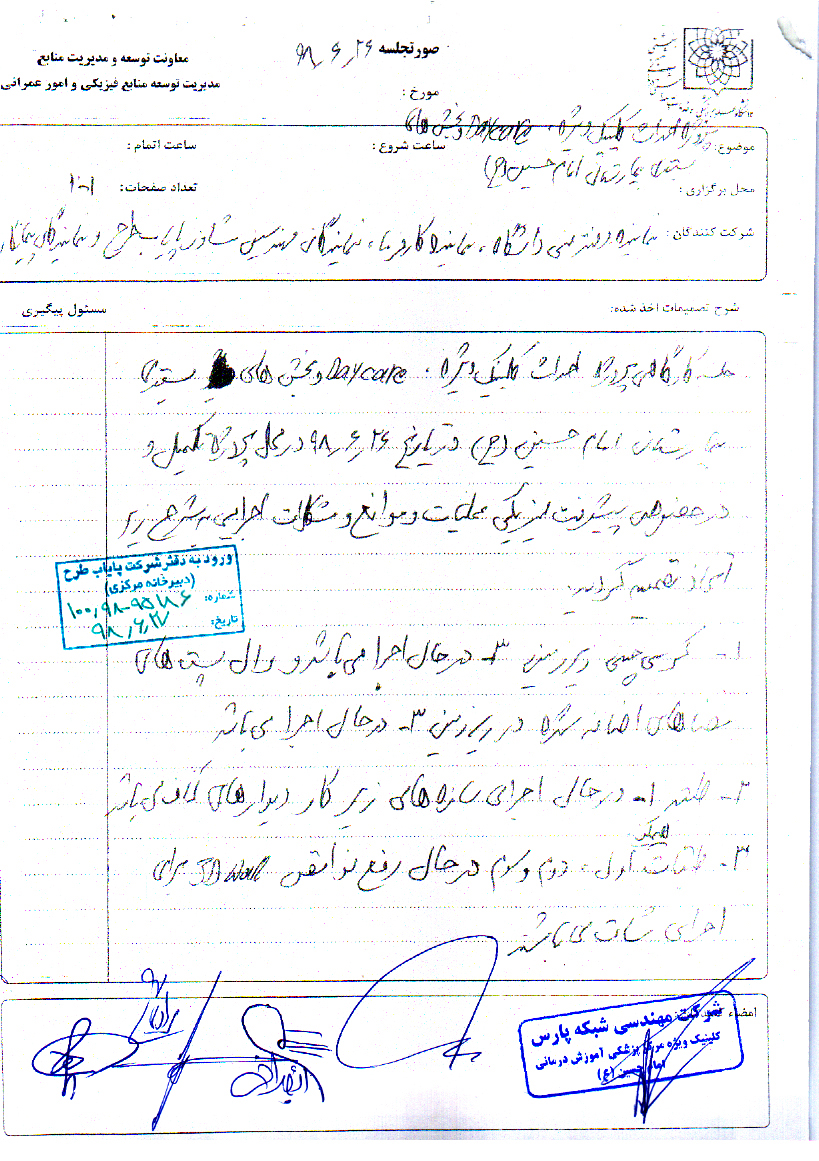 معاونت توسعه و مدیریت منابع
مدیریت توسعه منابع فیزیکی و امور عمرانی
صورتجلسه ۹۸,۶,۲۶
مورخ :
موضوع: پروژه احداث کلینیک ویژه، Daycare و بخش های
بستری بیمارستان امام حسین (ع)
ساعت شروع :
ساعت اتمام :
محل برگزاری :
تعداد صفحات: ۱-۱
شرکت کنندگان : نماینده دفتر فنی دانشگاه، نماینده کارفرما، نمایندگان مهندسین مشاور پایاب طرح و نمایندگان پیمانکار
شرح تصمیمات اخذ شده:
مسئول پیگیری
جلسه کارگاهی پروژه احداث کلینیک ویژه، Daycare و بخش های بستری
بیمارستان امام حسین (ع) در تاریخ ۹۸,۶,۲۶ در محل پروژه تشکیل و
در خصوص پیشرفت فیزیکی عملیات و موانع و مشکلات اجرایی به شرح زیر
اتخاذ تصمیم گردید.
۱- کرسی چینی زیرزمین ۳- در حال اجرا می باشد و وال پست های
فضاهای اضافه شده در زیرزمین ۳- در حال اجرا می باشد
۲- طبقه ۱- در حال اجرای سازه های زیر کار دیوارهای کناف می باشد
۳- طبقات اول، دوم و سوم در حال رفع نواقص 3D wall برای
اجرای شاتکریت می باشد
ورود به دفتر شرکت پایاب طرح
(دبیرخانه مرکزی)
شماره: ۱۰۰,۹۸-۹۵۷۸۶
تاریخ: ۹۸,۶,۲۷
امضاء
شرکت مهندسی شبکه پارس
کلینیک ویژه مرکز پزشکی آموزش درمانی
امام حسین (ع)